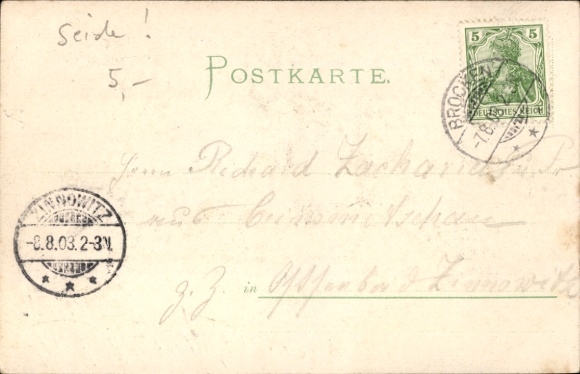 Seide!
5,-
POSTKARTE.
5 5
DEUTSCHES REICH
BROCKEN
-7.8.03
Herrn Richard
aus Crimmitschau
ZINNOWITZ
-8.8.03.2-3N.
z. Z. in Ostseebad Zinnowitz